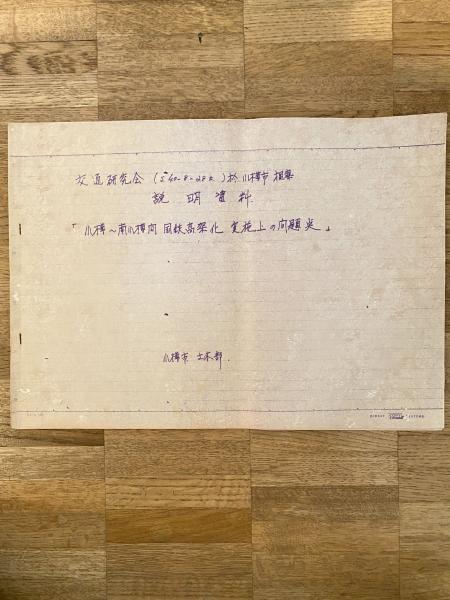 交通研究会 (S40-8-28土)於小樽市
説明資料
「小樽～南小樽間 国鉄高架化 実施上の問題点」
小樽市 土木部.